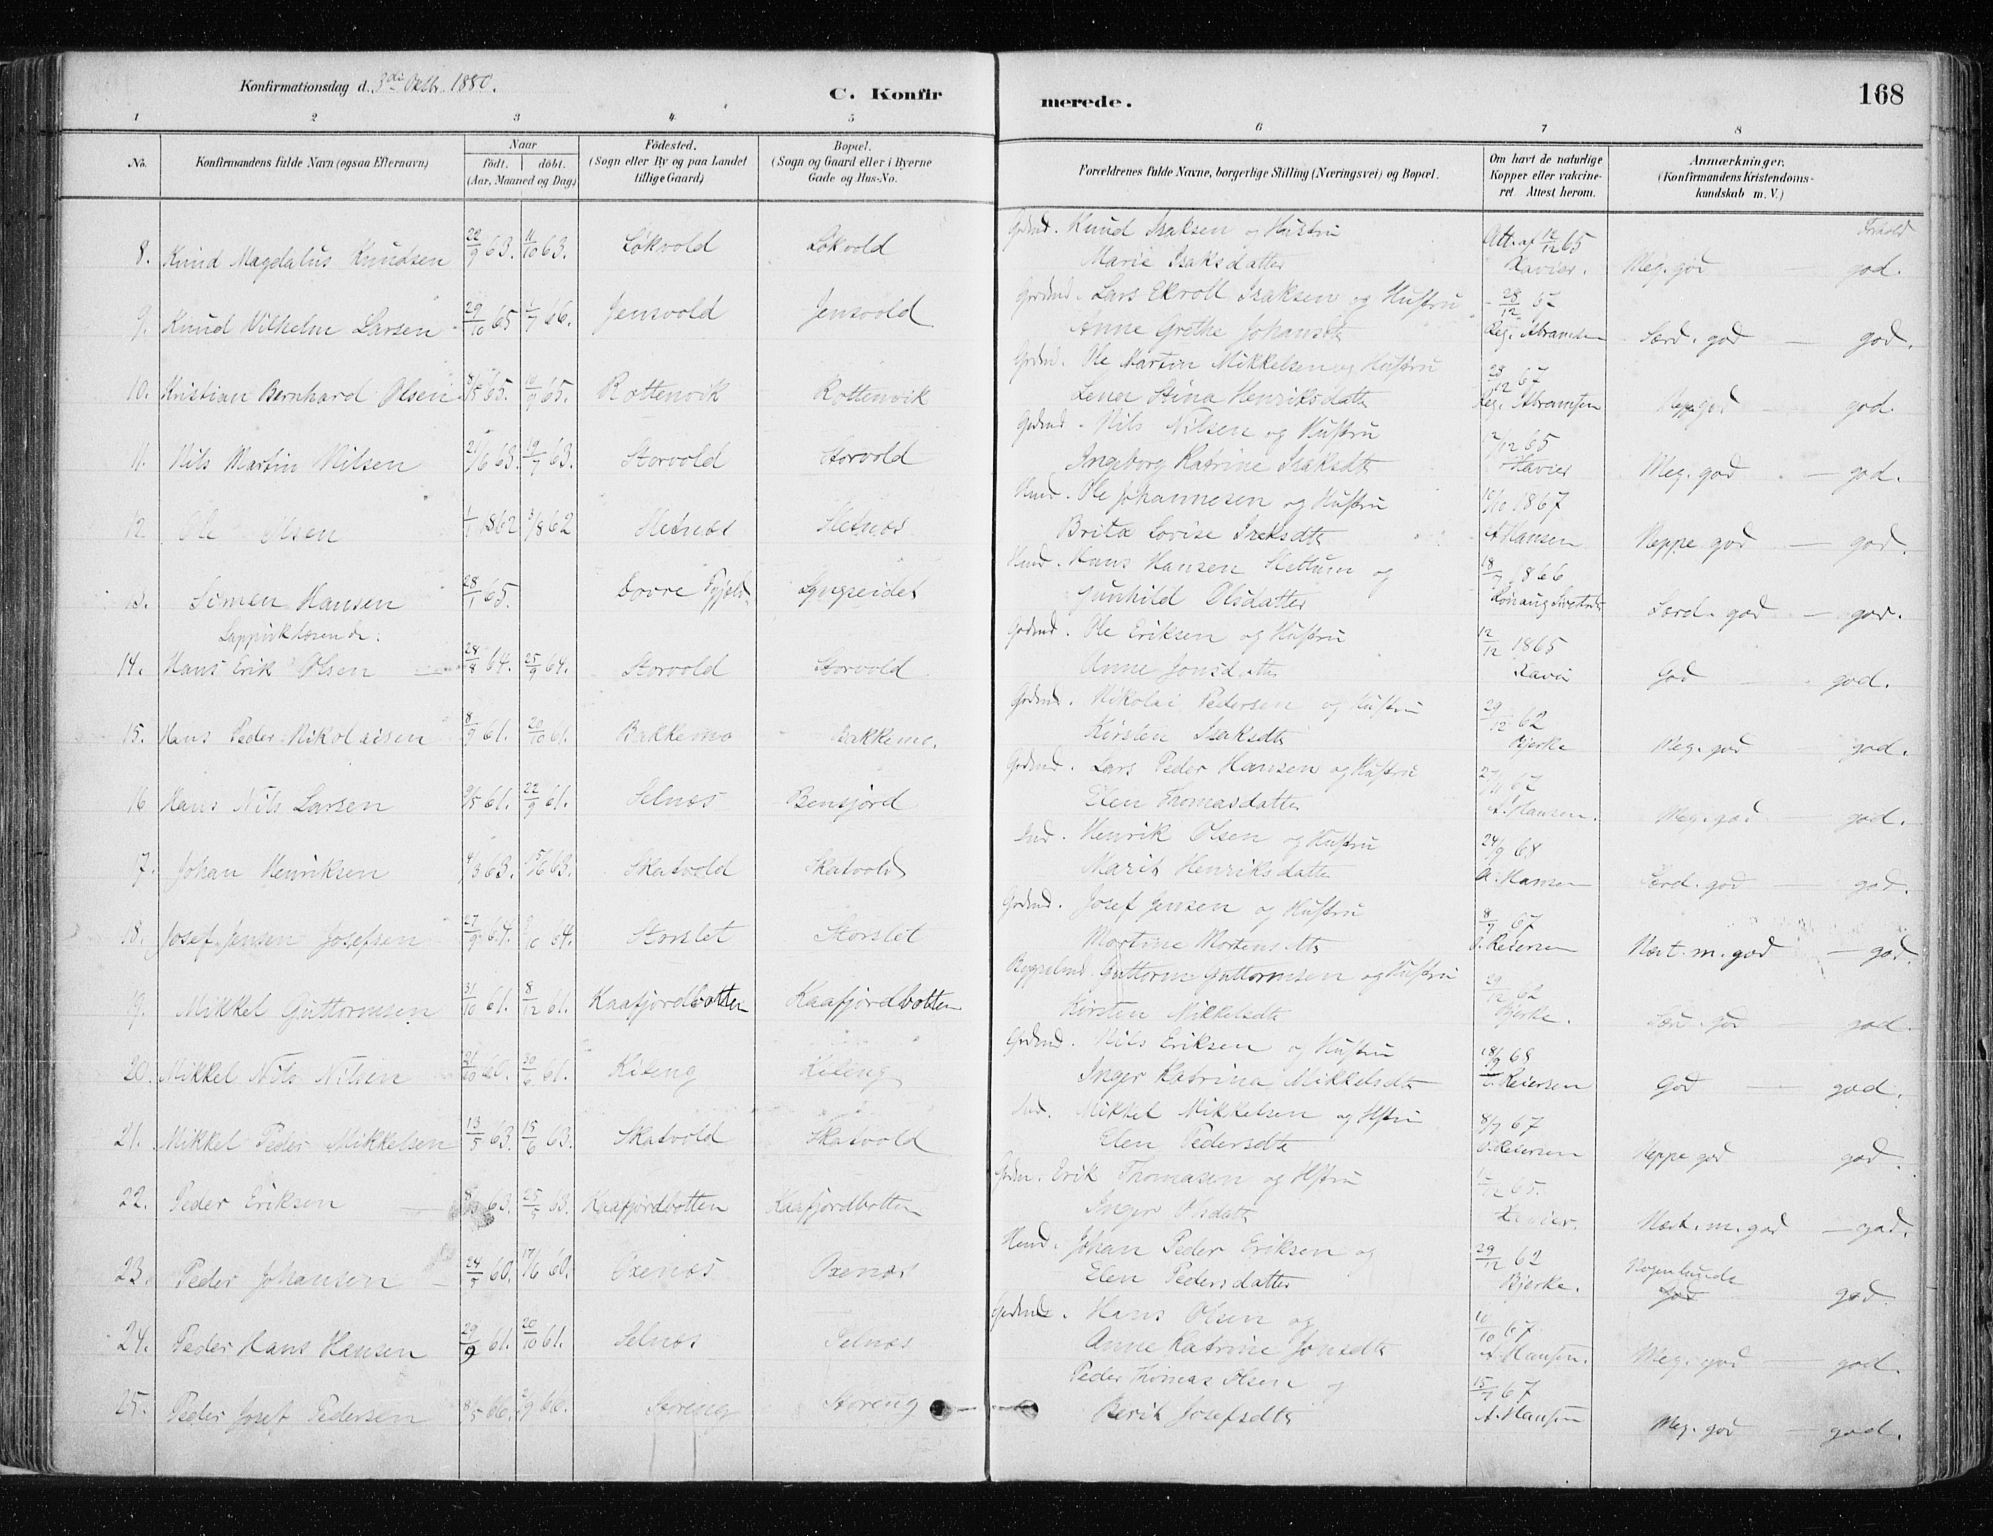 Konfirmationsdag d. 3die Oktbr. 1880.
C. Konfirmerede.
168
1 2 3 4 5 6 7 8
No. Konfirmandens fulde Navn (ogsaa Efternavn) Naar født. døbt. (Aar, Maaned og Dag) Fødested. (Sogn eller By og paa Landet tillige Gaard) Bopæl. (Sogn og Gaard eller i Byerne Gade og Hus-No. Forældrenes fulde Navne, borgerlige Stilling (Næringsvei) og Bopæl. Om havt de naturlige Kopper eller vakcineret Attest herom. Anmærkninger. (Konfirmandens Kristendomskundskab m. V.)
Forhold
8. Knud Magdalus Knudsen 22/9 63. 11/10 63. Løkvold Løkvold Gdmd. Knud Isaksen og Hustru Att. af 12/12 65
Marie Isaksdatter Xavier. Meg. god — god.
9. Knud Vilhelm Larsen 29/10 65 1/7 66. Jensvold Jensvold Grdmd. Lars Ekroll Isaksen og Hustru 28/12 67
Anne Grethe Johansdtr Abramsen Særd. god — god.
10. Kristian Bernhard Olsen 65. 65. Rottenvik Rottenvik Grdmd. Ole Martin Mikkelsen og Hustru 28/12 67
Lena Stina Henriksdatter Abramsen god. god.
11. Nils Martin Nilsen 21/6 63. 19/7 63. Storvold Storvold Grdmd. Nils Nilsen og Hustru 12/12 65
Ingeborg Katrine Isaksdtr Xavier Meg. god — god.
12. Ole Olsen 1/1 1862 3/8 62 Sletnæs Sletnæs Hmd. Ole Johannesen og Hustru 10/10 1867
Brita Lovise Isaksdtr A Hansen Neppe god — god.
13. Simen Hansen 28/1 65. Dovre Lyngseidet Hmd. Hans Hansen Slettum og 1866
Gunhild Olsdatter Særd. god — god.
Lappisktalende:
14. Hans Erik Olsen 28/8 64. 25/9 64. Storvold Storvold Grdmd. Ole Eriksen og Hustru 12/12 1865
Anne Jonsdatter Xavier God — god.
15. Hans Peder Nikolaisen 8/9 61. 20/10 61. Bakkemo Bakkemo. Grdmd. Nikolai Pedersen og Hustru 29/12 62
Kirsten Isaksdtr Bjerke Meg. god god.
16 Hans Nils Larsen 9/5 61. 22/9 61. Selnæs Bensjord Grdmd. Lars Peder Hansen og Hustru 67
Elen Thomasdatter A. Hansen. Meg. god — god.
17. Johan Henriksen 4/3 63. 15/6 63. Skatvold Skatvold Ind. Henrik Olsen og Hustru 24/9 68
Marit Henriksdatter A. Hansen Særd. god — god.
18. Josef Jensen Josefsen 27/9 64. 64. Storslet Storslet Grdmd. Josef Jensen og Hustru 8/7 67
Martine Mortensdtr Reiersen Nært. m. god — god.
19. Mikkel Guttormsen 31/10 61. 8/12 61. Kaafjordbotten Kaafjordbotten Bygselmd. Guttorm Guttormsen og Hustru 29/12 62
Kirsten Mikkelsdtr Bjerke. god — god.
20. Mikkel Nils Nilsen 21/10 30/6 61. Kiteng Grdmd. Nils Eriksen og Hustru 18/9 68
Inger Katrina Mikkelsdtr Reiersen God — god.
21. Mikkel Peder Mikkelsen 13/5 63. 15/6 63. Skatvold Skatvold Ind. Mikkel Mikkelsen og Hstru 8/7 67
Elen Pedersdtr Reiersen Neppe god — god.
22. Peder Eriksen 63. 25/5 63. Kaafjordbotten Kaafjordbotten Grdm. Erik Thomasen og Hstru 65.
Inger Olsdatr Xavier. Nært. m. god — god.
23. Peder Johansen 24/5 60. 17/6 60. Oxenæs Oxenæs Hmd. Johan Peder Eriksen og 29/12 62
Elen Pedersdatter Bjerke. Nogenlunde god.
24. Peder Hans Hansen 29/9 61. 20/10 61. Selnæs Selnæs Grdmd. Hans Olsen og 10/10 67
Anne Katrine Jonsdtr A. Hansen. Meg. god — god.
25. Peder Josef Pedersen 8/5 66. 66. Storeng Storeng Peder Thomas Olsen og 67
Berit Josefsdtr A. Hansen Meg. god — god.